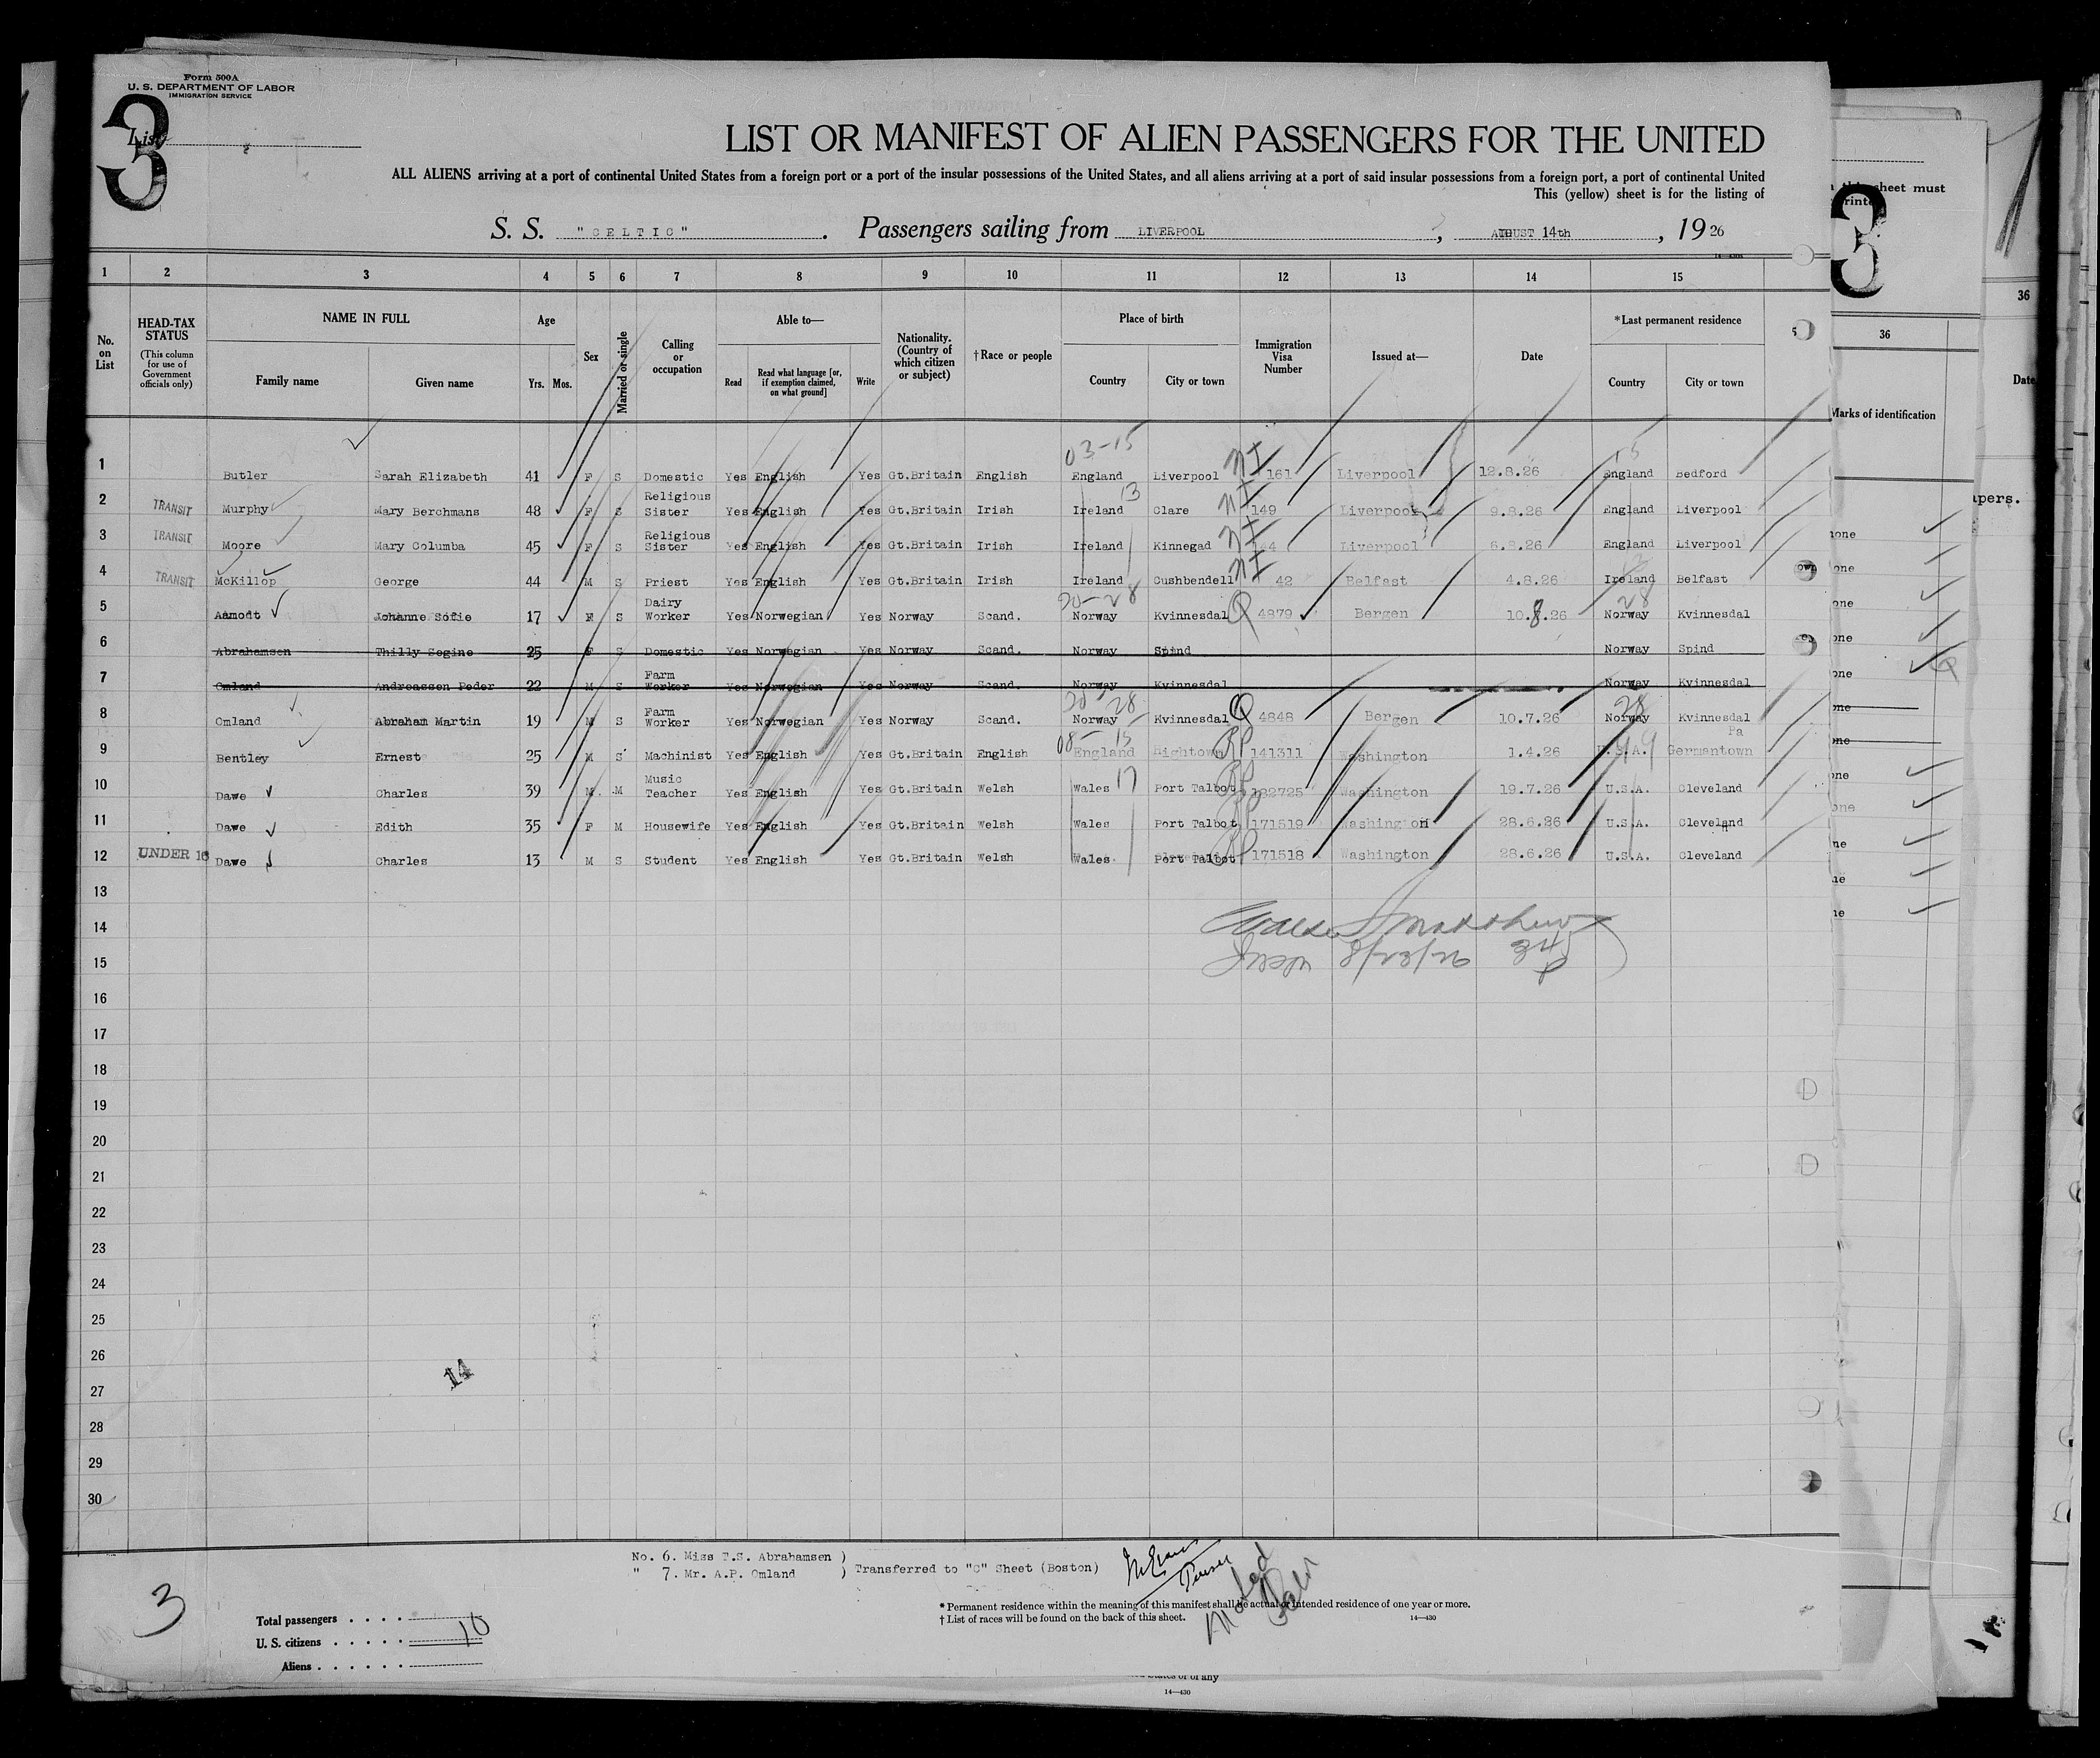 Form 500A
U. S. DEPARTMENT OF LABOR
IMMIGRATION SERVICE
3
List
LIST OR MANIFEST OF ALIEN PASSENGERS FOR THE UNITED
ALL ALIENS arriving at a port of continental United States from a foreign port or a port of the insular possessions of the United States, and all aliens arriving at a port of said insular possessions from a foreign port, a port of continental United
This (yellow) sheet is for the listing of
S. S. "CELTIC". Passengers sailing from LIVERPOOL, AUGUST 14th, 1926
1 2 3 4 5 6 7 8 9 10 11 12 13 14 15
No. on List
HEAD-TAX STATUS
(This column for use of Government officials only)
NAME IN FULL
Family name Given name
Age
Yrs. Mos.
Sex
Married or single
Calling or occupation
Able to—
Read
Read what language [or, if exemption claimed, on what ground]
Write
Nationality. (Country of which citizen or subject)
†Race or people
Place of birth
Country City or town
Immigration Visa Number
Issued at—
Date
*Last permanent residence
Country City or town
03-15 15
1 Butler Sarah Elizabeth 41 F S Domestic Yes English Yes Gt.Britain English England Liverpool NI 161 Liverpool 12.8.26 England Bedford
13
2 TRANSIT Murphy Mary Berchmans 48 F S Religious Sister Yes English Yes Gt.Britain Irish Ireland Clare NI 149 Liverpool 9.8.26 England Liverpool
3 TRANSIT Moore Mary Columba 45 F S Religious Sister Yes English Yes Gt.Britain Irish Ireland Kinnegad NI Liverpool 6.8.26 England Liverpool
4 TRANSIT McKillop George 44 M S Priest Yes English Yes Gt.Britain Irish Ireland Cushbendell NI 42 Belfast 4.8.26 Ireland Belfast
20-28 28
5 Aamodt Johanne Sofie 17 F S Dairy Worker Yes Norwegian Yes Norway Scand. Norway Kvinnesdal Q 4879 Bergen 10.8.26 Norway Kvinnesdal
6 Abrahamsen Thilly Segine 25 F S Domestic Yes Norwegian Yes Norway Scand. Norway Spind Norway Spind
7 Omland Andreassen Peder 22 M S Farm Worker Yes Norwegian Yes Norway Scand. Norway Kvinnesdal Norway Kvinnesdal
20-28 28
8 Omland Abraham Martin 19 M S Farm Worker Yes Norwegian Yes Norway Scand. Norway Kvinnesdal Q 4848 Bergen 10.7.26 Norway Kvinnesdal
08-15 Pa
9 Bentley Ernest 25 M S Machinist Yes English Yes Gt.Britain English England Hightown RP 141311 Washington 1.4.26 U.S.A. Germantown
17
10 Dawe Charles 39 M M Music Teacher Yes English Yes Gt.Britain Welsh Wales Port Talbot RP 182725 Washington 19.7.26 U.S.A. Cleveland
11 Dawe Edith 35 F M Housewife Yes English Yes Gt.Britain Welsh Wales Port Talbot RP 171519 Washington 28.6.26 U.S.A. Cleveland
12 UNDER 16 Dawe Charles 13 M S Student Yes English Yes Gt.Britain Welsh Wales Port Talbot RP 171518 Washington 28.6.26 U.S.A. Cleveland
13
14
15 8/23/26
16
17
18
19
20
21
22
23
24
25
26
14
27
28
29
30
No. 6. Miss T.S. Abrahamsen )
" 7. Mr. A.P. Omland ) Transferred to "C" Sheet (Boston)
* Permanent residence within the meaning of this manifest shall be actual or intended residence of one year or more.
† List of races will be found on the back of this sheet. 14—430
3
Total passengers
U. S. citizens 10
Aliens
14—430
sheet must
3
36
Marks of identification
36
Date